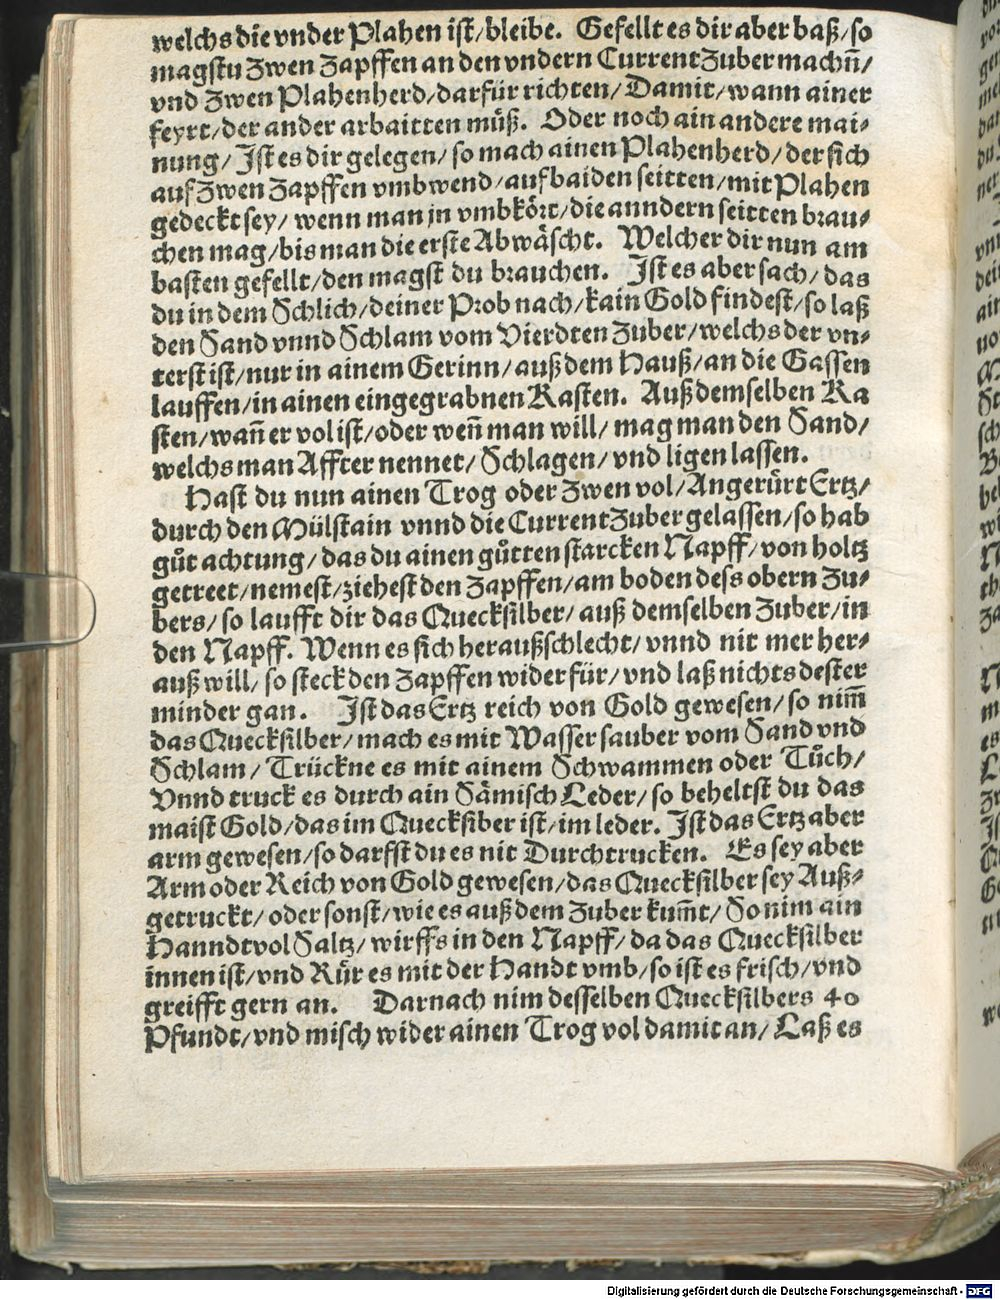 welchs die vnder Plahen ist/bleibe. Gefellt es dir aber baß/so
magstu zwen zapffen an den vndern Current zuber machñ/
vnd zwen Plahenherd/darfür richten/Damit/wann ainer
feyrt/der ander arbaitten müß. Oder noch ain andere mai-
nung/ Ist es dir gelegen/so mach ainen Plahenherd/der sich
auf zwen zapffen vmbwend/auf baiden seitten/mit Plahen
gedeckt sey/ wenn man jn vmbkört/die anndern seitten brau-
chen mag/bis man die erste Abwäscht. Welcher dir nun am
basten gefellt/den magst du brauchen. Ist es aber sach/das
du in dem Schlich/deiner Prob nach/kain Gold findest/so laß
den Sand vnnd Schlam vom Vierdten zuber/welchs der vn-
terst ist/nur in ainem Gerinn/auß dem Hauß/an die Gassen
lauffen/in ainen eingegrabnen Kasten. Auß demselben Ka
sten/wañ er vol ist/oder weñ man will/mag man den Sand/
welchs man Affter nennet/Schlagen/vnd ligen lassen.
Hast du nun ainen Trog oder zwen vol/Angerürt Ertz/
durch den Mülstain vnnd die Current zuber gelassen/so hab
gůt achtung/das du ainen gůtten starcken Napff/von holtz
getreet/nemest/ziehest den zapffen/am boden dess obern zu-
bers/so laufft dir das Quecksilber/auß demselben zuber/in
den Napff. Wenn es sich heraußschlecht/vnnd nit mer her-
auß will/so steck den zapffen wider für/vnd laß nichts dester
minder gan. Ist das Ertz reich von Gold gewesen/so nim̄
das Quecksilber/mach es mit Wasser sauber vom Sand vnd
Schlam/Trückne es mit ainem Schwammen oder Tůch/
Vnnd truck es durch ain Sämisch Leder/so beheltst du das
maist Gold/das im Quecksiber ist/im leder. Ist das Ertz aber
arm gewesen/so darfst du es nit Durchtrucken. Es sey aber
Arm oder Reich von Gold gewesen/das Quecksilber sey Auß-
getruckt/oder sonst/wie es auß dem zuber kum̄t/So nim ain
Hanndtvol Saltz/wirffs in den Napff/da das Quecksilber
innen ist/vnd Rür es mit der Handt vmb/so ist es frisch/vnd
greifft gern an. Darnach nim desselben Quecksilbers 40
Pfundt/vnd misch wider ainen Trog vol damit an/Laß es
Digitalisierung gefördert durch die Deutsche Forschungsgemeinschaft - DFG